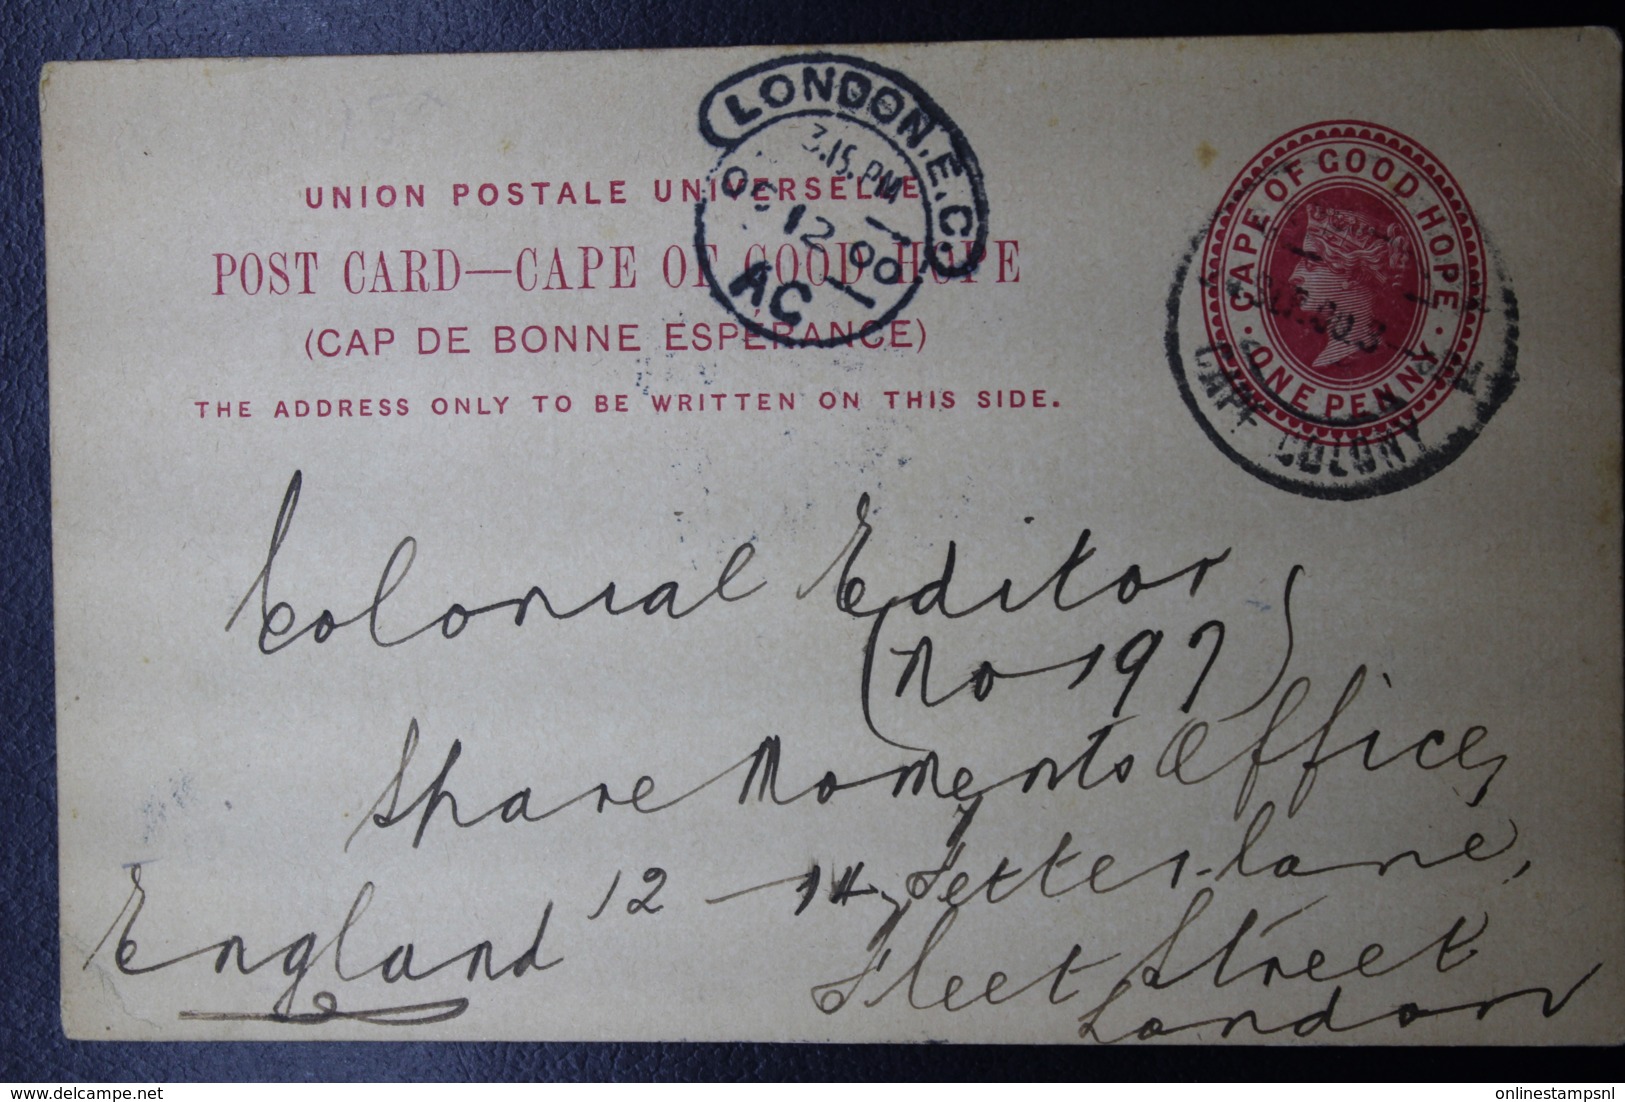 LONDON.E.C.
3.15.PM
OC 12 00
AC
UNION POSTALE UNIVERSELLE
POST CARD—CAPE OF GOOD HOPE
(CAP DE BONNE ESPÉRANCE)
THE ADDRESS ONLY TO BE WRITTEN ON THIS SIDE.
CAPE OF GOOD HOPE
ONE PENNY
CAPE COLONY
Colonial Editor
(No 197)
Share Moments Office,
12 - 14, Fetter-lane,
Fleet Street
London
England
onlinestampsnl